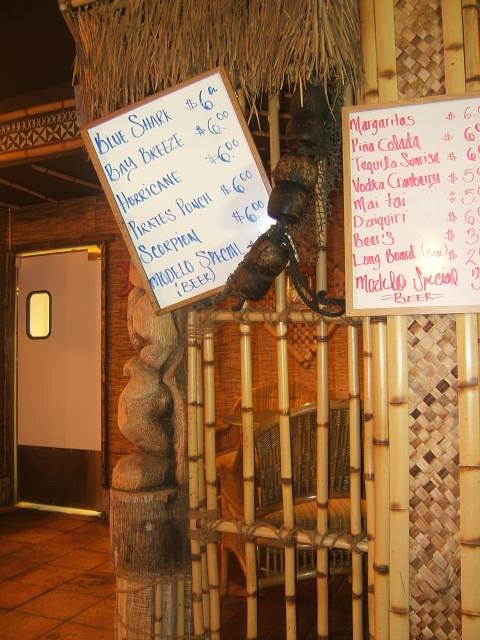 BLUE SHARK $6.00
BAY BREEZE $6.00
HURRICANE $6.00
PIRATES PUNCH $6.00
SCORPION $6.00
MODELO SPECIAL
(BEER)
Margaritas $6.
Piña Colada $6
Tequila Sunrise $6
Vodka Cranberry $5
Mai tai $5
Daiquiri $6
Beers $3
Long Board (Beer) $
Modelo Special 3
=BEER=